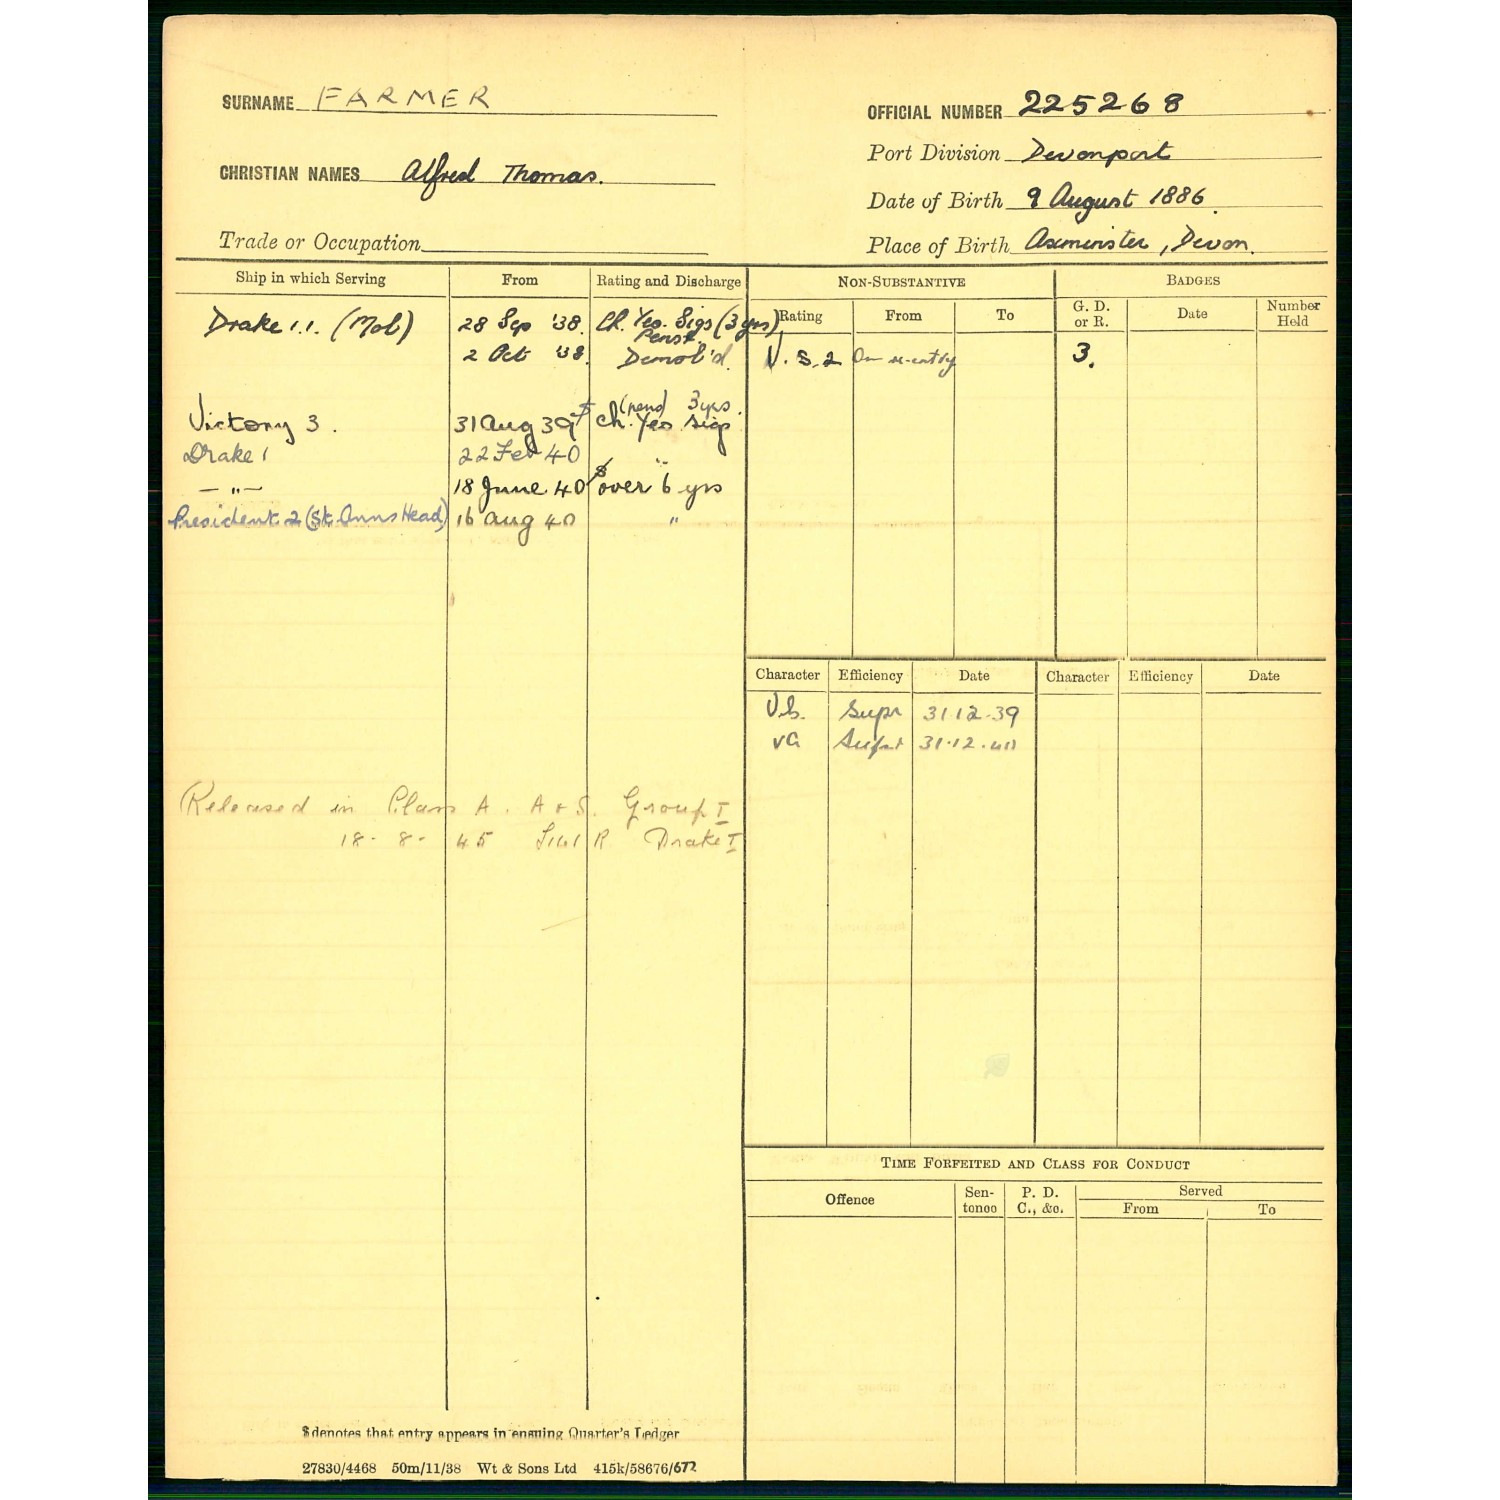 SURNAME FARMER
OFFICIAL NUMBER 225268
Port Division Devonport
CHRISTIAN NAMES Alfred Thomas.
Date of Birth 9 August 1886.
Trade or Occupation
Place of Birth Axminster, Devon.
Ship in which Serving From Rating and Discharge
Drake 1.1. (Mob) 28 Sep '38. Ch. Yeo. Sigs (3 yrs)
Pensr.
2 Oct '38. Demob'd.
(pens) 3 yrs.
Victory 3. 31 Aug 39 $ Ch. Yeo Sigs
Drake 1 22 Feb 40 "
— " — 18 June 40 $ over 6 yrs
President 2 (St. Anns Head) 16 Aug 40 "
Released in Class A. A & S. Group I
18 - 8 - 45 R. Drake I
$ denotes that entry appears in ensuing Quarter's Ledger
27830/4468 50m/11/38 Wt & Sons Ltd 415k/58676/672
NON-SUBSTANTIVE
Rating From To
V.S.2 On re-entry
BADGES
G. D. or R. Date Number Held
3.
Character Efficiency Date Character Efficiency Date
V.G. Supr 31.12.39
VG Supr 31.12.40
TIME FORFEITED AND CLASS FOR CONDUCT
Offence Sen-tence P. D. C., &c. Served
From To